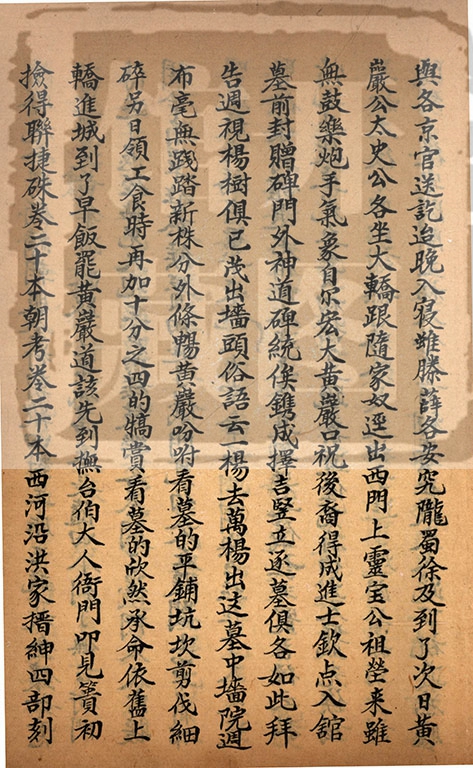 與各京官送訖迨晚入寢雖滕薛各安究隴蜀徐及到了次日黃
巖公太史公各坐大轎跟隨家奴逕出西門上靈宝公祖塋来雖
無鼓樂炮手氣象自尔宏大黃巖口祝後裔得成進士欽点入舘
墓前封贈碑門外神道碑統俟鐫成擇吉竪立逐墓俱各如此拜
告週視楊樹俱已茂出墻頭俗語云一楊去萬楊出这墓中墻院週
布毫無踐踏新株分外條暢黃巖吩咐看墓的平鋪坑坎剪伐細
碎另日領工食時再加十分之四的犒賞看墓的欣然承命依舊上
轎進城到了早飯罷黃巖道該先到撫台伯大人衙門叩見簣初
撿得聯捷硃卷二十本朝考卷二十本西河沿洪家搢紳四部刻